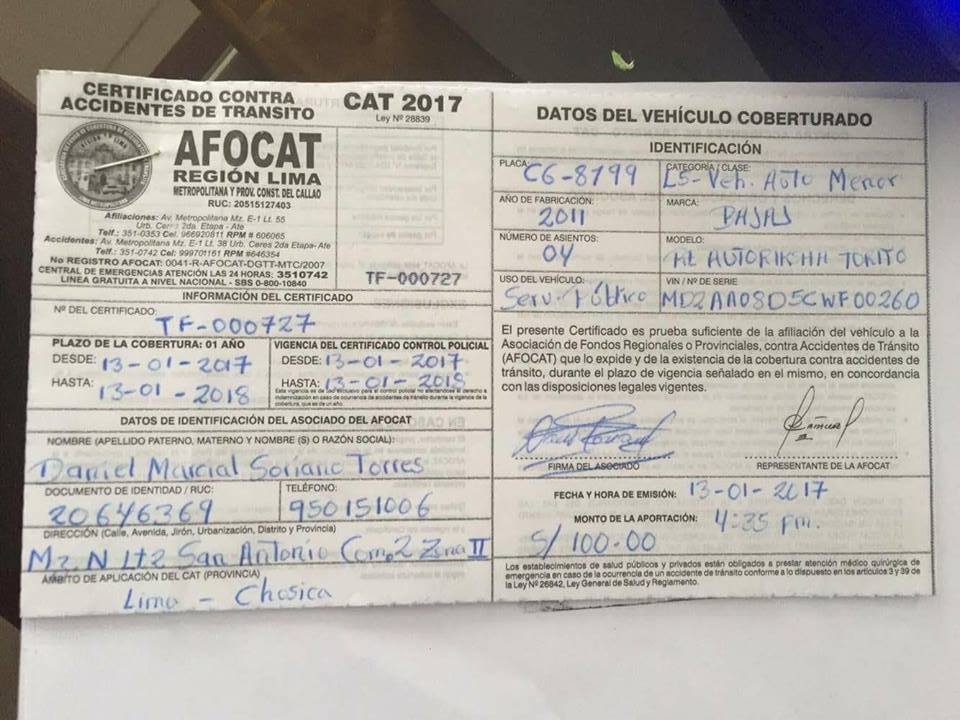 CERTIFICADO CONTRA
ACCIDENTES DE TRANSITO
CAT 2017
Ley Nº 28839
AFOCAT
REGIÓN LIMA
METROPOLITANA Y PROV. CONST. DEL CALLAO
RUC: 20515127403
Afiliaciones: Av. Metropolitana Mz. E-1 Lt. 55
Urb. Ceres 2da. Etapa - Ate
Telf.: 351-0353 Cel. 966920811 RPM # 606065
Accidentes: Av. Metropolitana Mz. E-1 Lt. 38 Urb. Ceres 2da Etapa-Ate
Telf.: 351-0742 Cel: 999701161 RPM #646354
No REGISTRO AFOCAT: 0041-R-AFOCAT-DGTT-MTC/2007
CENTRAL DE EMERGENCIAS ATENCIÓN LAS 24 HORAS: 3510742
LINEA GRATUITA A NIVEL NACIONAL - SBS 0-800-10840
TF-000727
INFORMACIÓN DEL CERTIFICADO
Nº DEL CERTIFICADO:
TF-000727
PLAZO DE LA COBERTURA: 01 AÑO
DESDE: 13-01-2017
HASTA: 13-01-2018
VIGENCIA DEL CERTIFICADO CONTROL POLICIAL
DESDE: 13-01-2017
HASTA: 13-01-2018
DATOS DE IDENTIFICACIÓN DEL ASOCIADO DEL AFOCAT
NOMBRE (APELLIDO PATERNO, MATERNO Y NOMBRE (S) O RAZÓN SOCIAL):
Daniel Marcial Soriano Torres
DOCUMENTO DE IDENTIDAD / RUC:
20646369
TELÉFONO:
950151006
DIRECCIÓN (Calle, Avenida, Jirón, Urbanización, Distrito y Provincia)
Mz N Lt2 San Antonio Com.2 Zona II
ÁMBITO DE APLICACIÓN DEL CAT (PROVINCIA)
Lima - Chosica
DATOS DEL VEHÍCULO COBERTURADO
IDENTIFICACIÓN
PLACA:
C6-8799
CATEGORÍA / CLASE:
L5-Veh. Auto Menor
AÑO DE FABRICACIÓN:
2011
MARCA:
BAJAJ
NÚMERO DE ASIENTOS:
04
MODELO:
TORITO
USO DEL VEHÍCULO:
Serv. Público
VIN / Nº DE SERIE
MD2AA08D5CWF00260
El presente Certificado es prueba suficiente de la afiliación del vehículo a la
Asociación de Fondos Regionales o Provinciales, contra Accidentes de Tránsito
(AFOCAT) que lo expide y de la existencia de la cobertura contra accidentes de
tránsito, durante el plazo de vigencia señalado en el mismo, en concordancia
con las disposiciones legales vigentes.
FIRMA DEL ASOCIADO
REPRESENTANTE DE LA AFOCAT
FECHA Y HORA DE EMISIÓN: 13-01-2017
4:35 pm.
MONTO DE LA APORTACIÓN:
S/ 100.00
Los establecimientos de salud públicos y privados están obligados a prestar atención médico quirúrgica de
emergencia en caso de la ocurrencia de un accidente de tránsito conforme a lo dispuesto en los artículos 3 y 39 de
la Ley Nº 26842, Ley General de Salud y Reglamento.